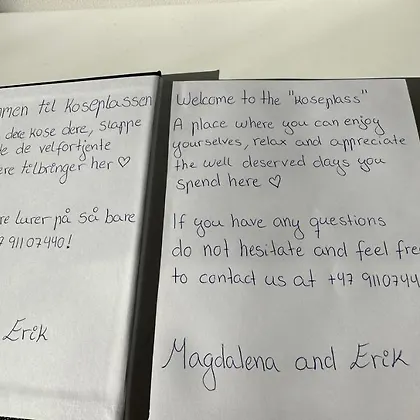 men til Koseplassen
dere kose dere, slappe
de de velfortjente
ere tilbringer her ♡
re lurer på så bare
7 91107440!
Erik
Welcome to the "koseplass"
A place where you can enjoy
yourselves, relax and appreciate
the well deserved days you
spend here ♡
If you have any questions
do not hesitate and feel free
to contact us at +47 9110744
Magdalena and Erik